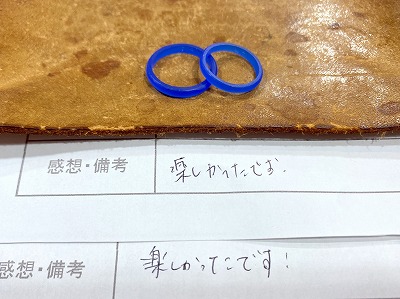 感想・備考 楽しかったです。
感想・備考 楽しかったです!